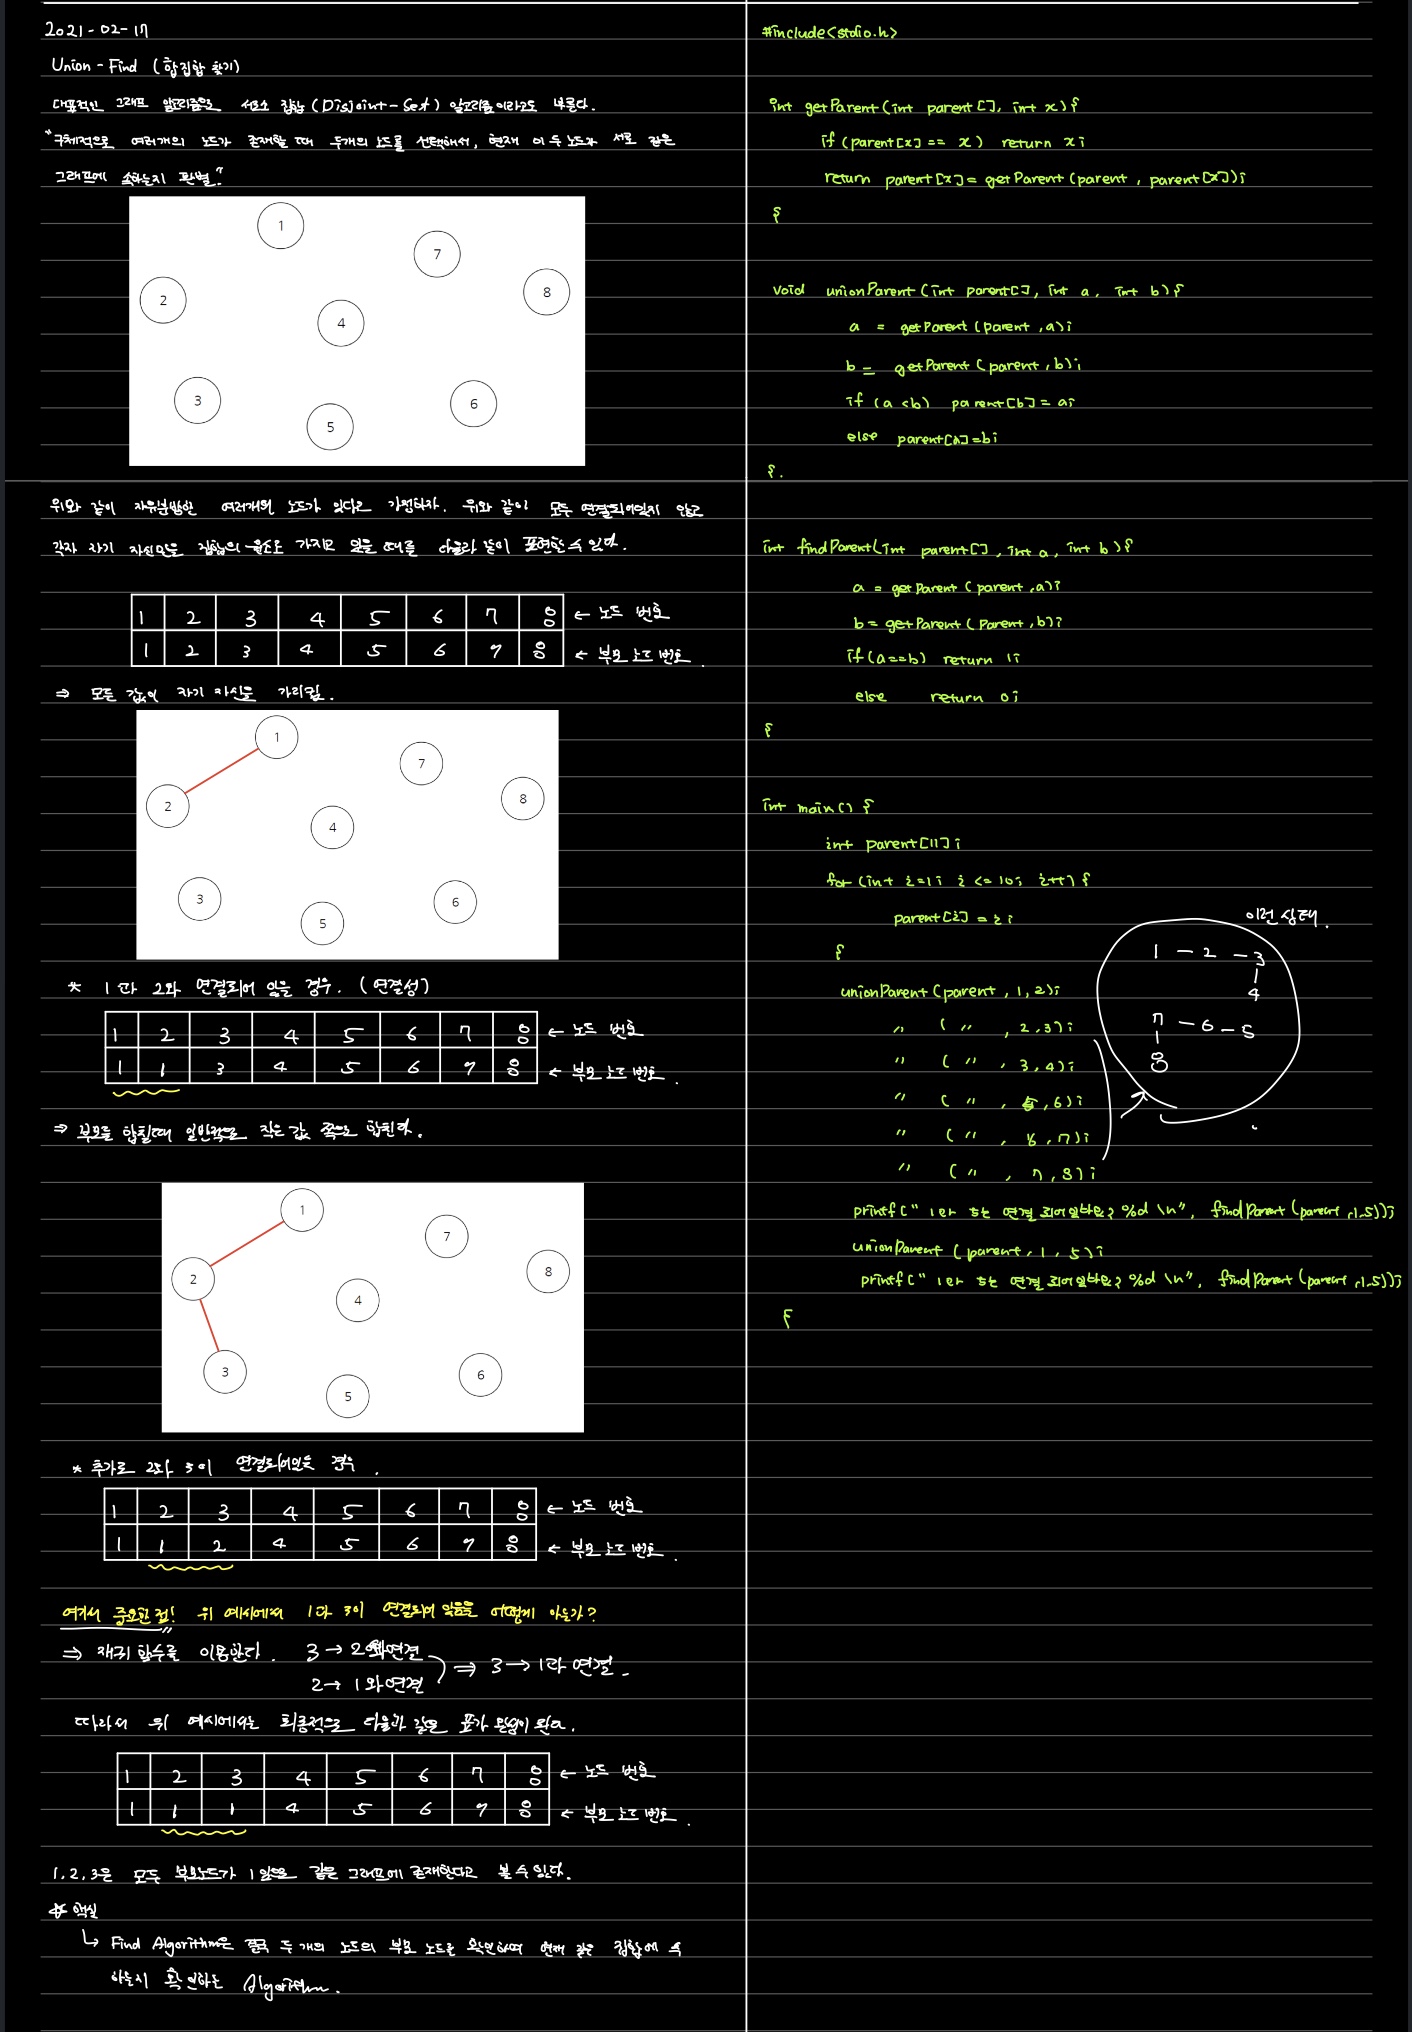 2021-02-17
Union-Find (합집합 찾기)
대표적인 그래프 알고리즘으로 서로소 집합 (Disjoint-Set) 알고리즘이라고도 부른다.
"구체적으로 여러개의 노드가 존재할 때 두개의 노드를 선택해서, 현재 이 두 노드가 서로 같은
그래프에 속하는지 판별."
1
7
8
2
4
3
5
6
위와 같이 자유분방한 여러개의 노드가 있다고 가정하자. 위와 같이 모두 연결되어있지 않고
각자 자기 자신만을 집합의 원소로 가지고 있을 때를 다음과 같이 표현할 수 있다.
1 2 3 4 5 6 7 8 ← 노드 번호
1 2 3 4 5 6 7 8 ← 부모 노드 번호.
⇒ 모든 값이 자기 자신을 가리킴.
1
7
8
2
4
3
5
6
* 1과 2와 연결되어 있을 경우. (연결성)
1 2 3 4 5 6 7 8 ← 노드 번호
1 1 3 4 5 6 7 8 ← 부모 노드 번호.
⇒ 부모를 합칠때 일반적으로 작은 값 쪽으로 합친다.
1
7
8
2
4
3
5
6
* 추가로 2와 3이 연결되어있는 경우.
1 2 3 4 5 6 7 8 ← 노드 번호
1 1 2 4 5 6 7 8 ← 부모 노드 번호.
여기서 중요한 점! 위 예시에서 1과 3이 연결되어 있음을 어떻게 아는가?
⇒ 재귀 함수를 이용한다. 3 → 2와연결
2 → 1와연결 ⇒ 3 → 1과 연결.
따라서 위 예시에서는 최종적으로 다음과 같은 표가 완성이 된다.
1 2 3 4 5 6 7 8 ← 노드 번호
1 1 1 4 5 6 7 8 ← 부모 노드 번호.
1, 2, 3은 모두 부모노드가 1임으로 같은 그래프에 존재한다고 볼 수 있다.
☆ 핵심
↳ Find Algorithm은 결국 두 개의 노드의 부모 노드를 확인하여 현재 같은 집합에 속
하는지 확인하는 Algorithm.
#include<stdio.h>
int getParent(int parent[], int x){
if (parent[x] == x) return x;
return parent[x] = getParent(parent, parent[x]);
}
void unionParent(int parent[], int a, int b){
a = getParent(parent, a);
b = getParent(parent, b);
if (a<b) parent[b] = a;
else parent[a]=b;
}.
int findParent(int parent[], int a, int b){
a = getParent(parent, a);
b = getParent(parent, b);
if(a==b) return 1;
else return 0;
}
int main() {
int parent[11];
for (int i=1; i<=10; i++) {
parent[i] = i;
}
이런 상태.
1 - 2 - 3
4
7 - 6 - 5
8
unionParent(parent, 1, 2);
〃 ( 〃 , 2, 3);
〃 ( 〃 , 3, 4);
〃 ( 〃 , 5, 6);
〃 ( 〃 , 6, 7);
〃 ( 〃 , 7, 8);
printf(" 1과 5는 연결 되어있나요? %d \n", findParent(parent, 1,5));
unionParent(parent, 1, 5);
printf(" 1과 5는 연결 되어있나요? %d \n", findParent(parent, 1,5));
}